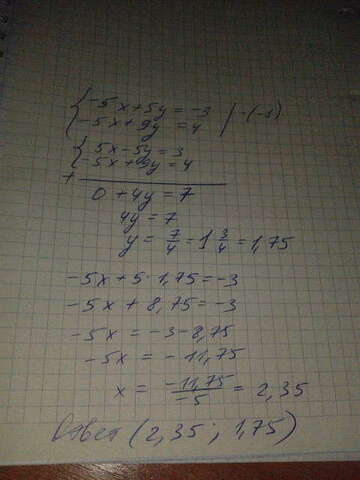 {-5x+5y=-3 | ·(-1)
{-5x+9y=4
{5x-5y=3
+ {-5x+9y=4
0+4y=7
4y=7
y=7/4=1 3/4=1,75
-5x+5·1,75=-3
-5x+8,75=-3
-5x=-3-8,75
-5x=-11,75
x=-11,75/-5=2,35
Ответ (2,35; 1,75)